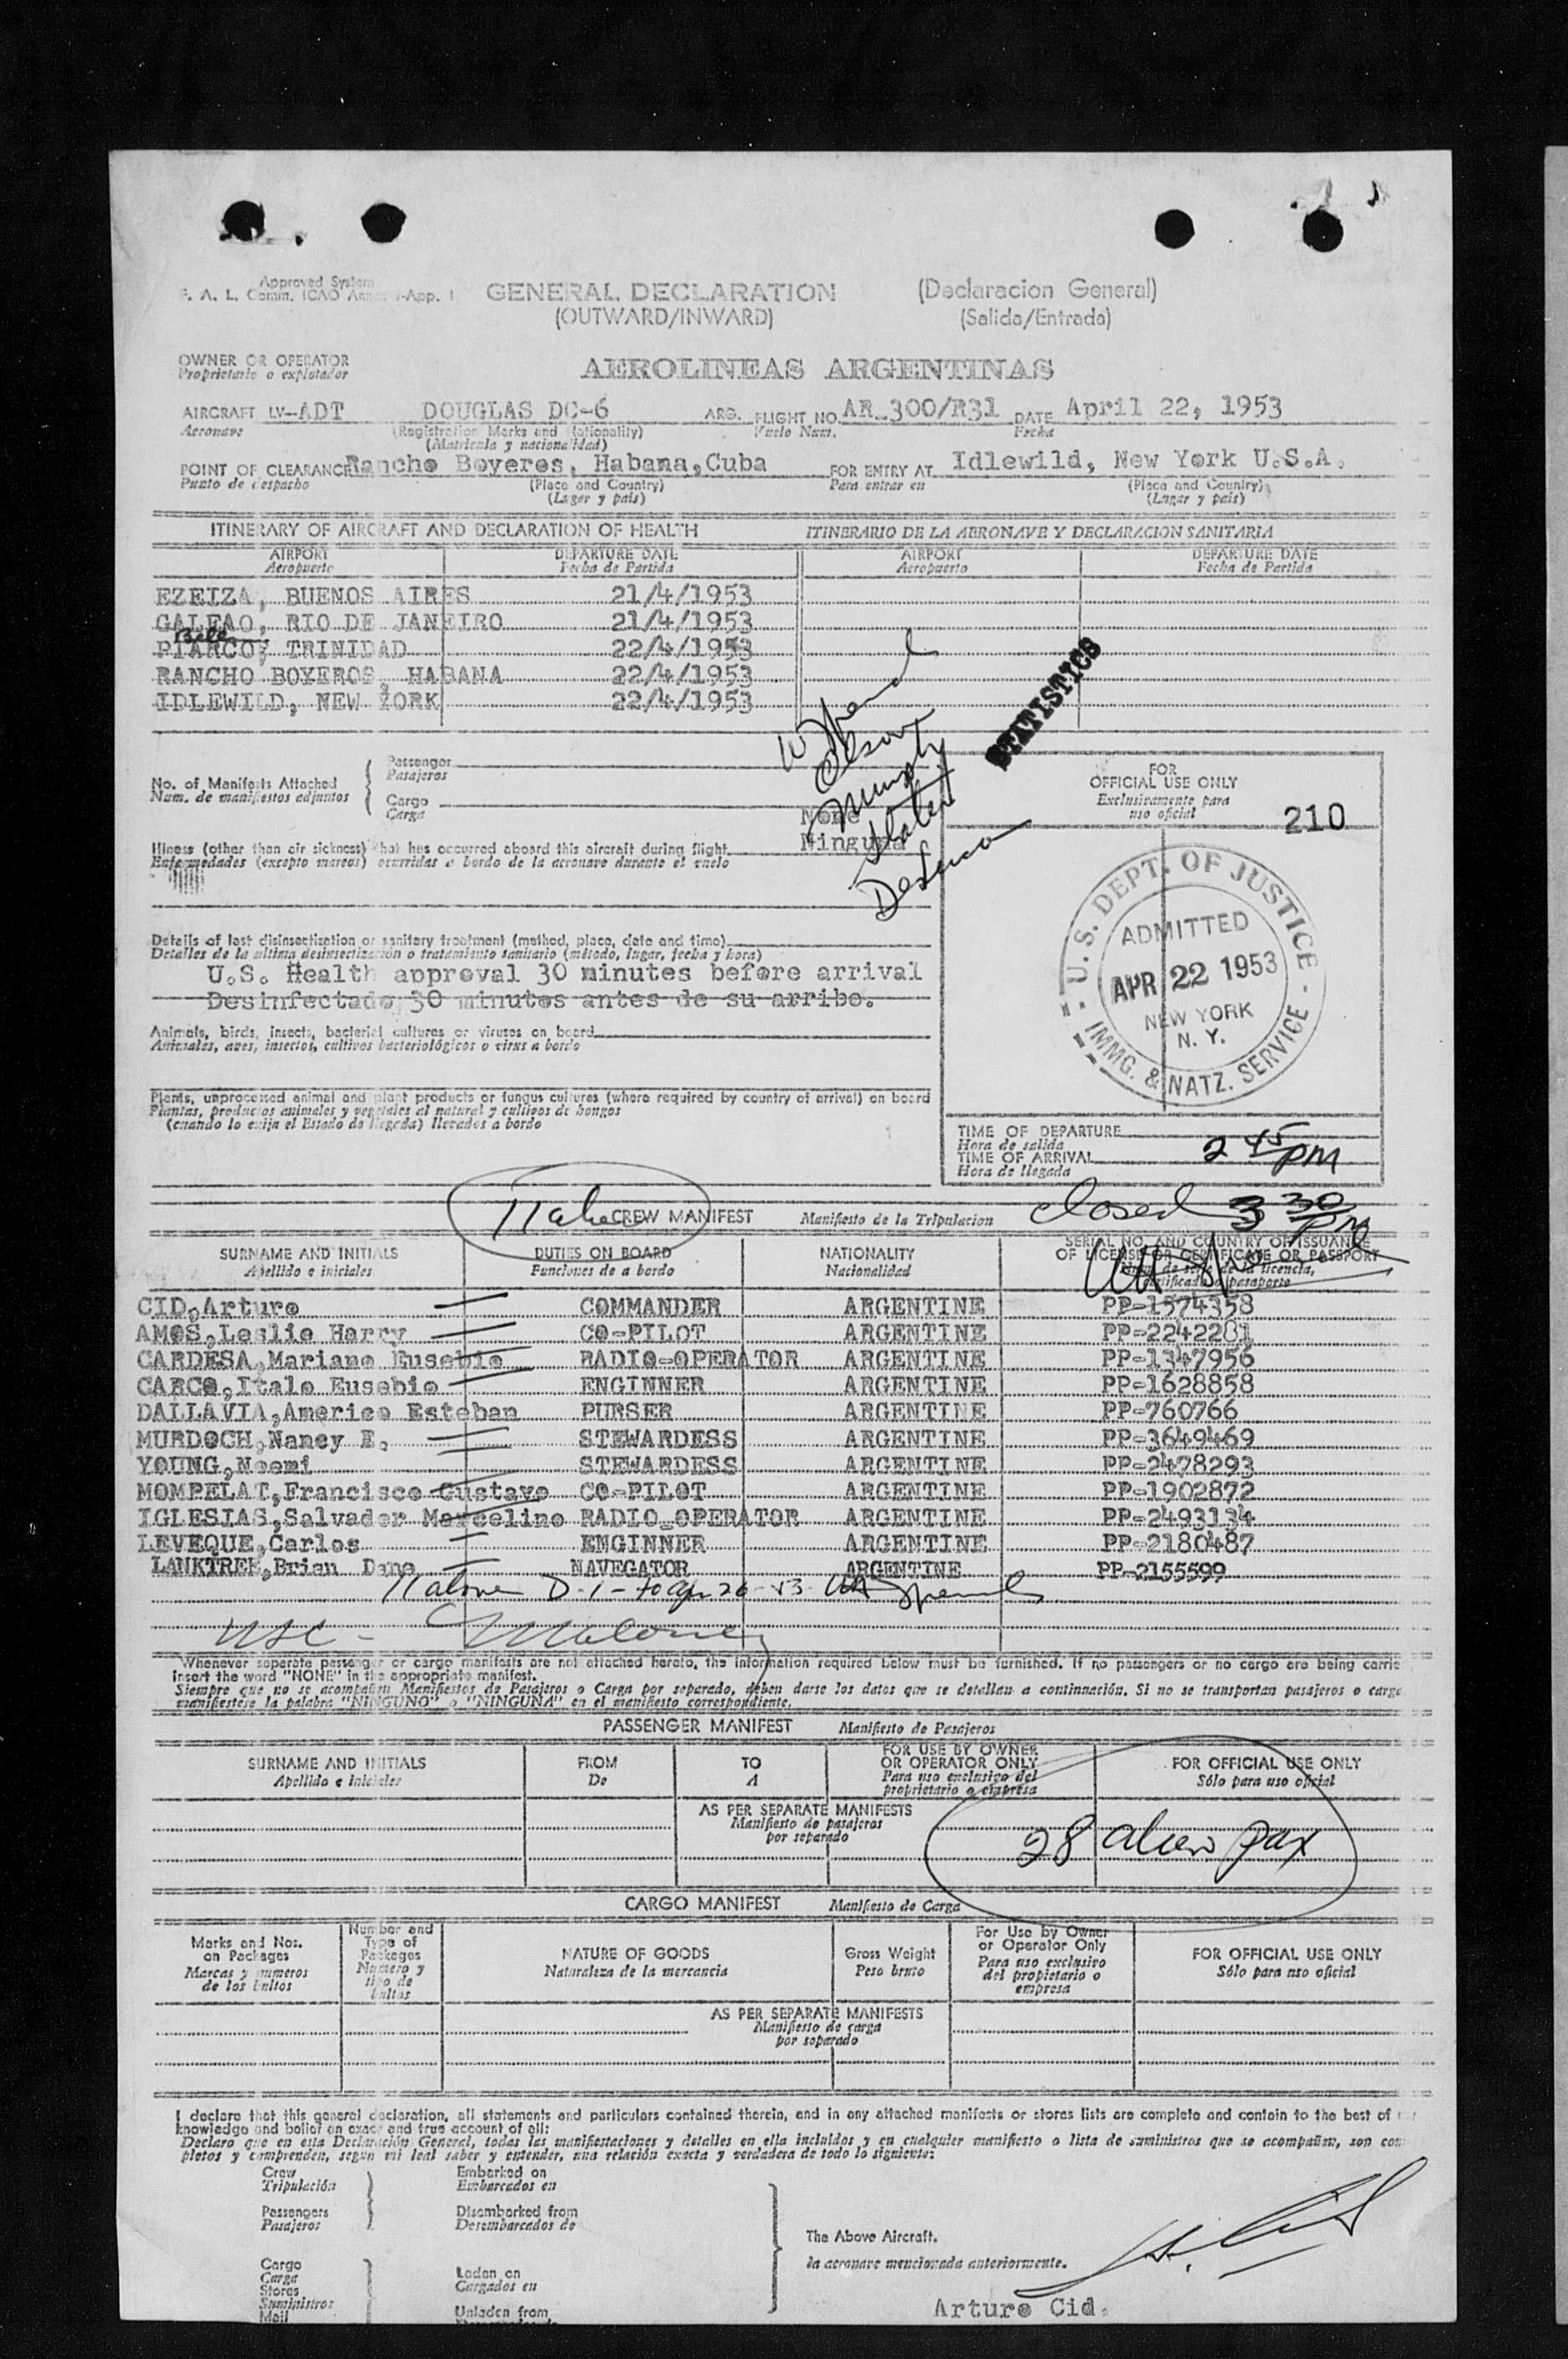 Approved System
F. A. L. Comm. ICAO Annex -App. I
GENERAL DECLARATION (Declaracion General)
(OUTWARD/INWARD) (Salida/Entrada)
OWNER OR OPERATOR
Proprietario o explotador
AEROLINEAS ARGENTINAS
AIRCRAFT LV-ADT DOUGLAS DC-6 ARG. FLIGHT NO. AR-300/R31 DATE April 22, 1953
Aeronave (Registration Marks and Nationality) Vuelo Num. Fecha
(Matricula y nacionalidad)
POINT OF CLEARANCE Rancho Boyeros, Habana,Cuba FOR ENTRY AT Idlewild, New York U.S.A.
Punto de despacho (Place and Country) Para entrar en (Place and Country)
(Lugar y pais) (Lugar y pais)
ITINERARY OF AIRCRAFT AND DECLARATION OF HEALTH ITINERARIO DE LA AERONAVE Y DECLARACION SANITARIA
AIRPORT DEPARTURE DATE AIRPORT DEPARTURE DATE
Aeropuerto Fecha de Partida Aeropuerto Fecha de Partida
EZEIZA, BUENOS AIRES 21/4/1953
GALEAO, RIO DE JANEIRO 21/4/1953
PIARCO, TRINIDAD 22/4/1953
RANCHO BOYEROS, HABANA 22/4/1953
IDLEWILD, NEW YORK 22/4/1953
STATISTICS
No. of Manifests Attached
Num. de manifiestos adjuntos
Passenger
Pasajeros
Cargo
Carga
FOR
OFFICIAL USE ONLY
Exclusivamente para
uso oficial
210
None
Ninguna
Illness (other than air sickness) that has occurred aboard this aircraft during flight
Enfermedades (excepto mareos) ocurridas a bordo de la aeronave durante el vuelo
U.S. DEPT. OF JUSTICE
ADMITTED
APR 22 1953
NEW YORK
N. Y.
IMMG. & NATZ. SERVICE
Details of last disinsectization or sanitary treatment (method, place, date and time)
Detalles de la ultima desinsectización o tratamiento sanitario (método, lugar, fecha y hora)
U.S. Health approval 30 minutes before arrival
Desinfectado 30 minutos antes de su arribo.
Animals, birds, insects, bacterial cultures or viruses on board
Animales, aves, insectos, cultivos bacteriológicos o virus a bordo
Plants, unprocessed animal and plant products or fungus cultures (where required by country of arrival) on board
Plantas, productos animales y vegetales al natural y cultivos de hongos
(cuando lo exija el Estado de llegada) llevados a bordo
TIME OF DEPARTURE
Hora de salida
TIME OF ARRIVAL 2 45 PM
Hora de llegada
CREW MANIFEST Manifiesto de la Tripulacion Closed 3 30 PM
SURNAME AND INITIALS DUTIES ON BOARD NATIONALITY SERIAL NO. AND COUNTRY OF ISSUANCE
OF LICENSE OR CERTIFICATE OR PASSPORT
Apellido e iniciales Funciones de a bordo Nacionalidad
CID,Arturo COMMANDER ARGENTINE PP-1574358
AMOS,Leslie Harry CO-PILOT ARGENTINE PP-2242281
CARDESA,Mariano Eusebio RADIO-OPERATOR ARGENTINE PP-1347956
CARCO,Italo Eusebio ENGINNER ARGENTINE PP-1628858
DALLAVIA,Americo Esteban PURSER ARGENTINE PP-760766
MURDOCH,Nancy E. STEWARDESS ARGENTINE PP-3649469
YOUNG,Noemi STEWARDESS ARGENTINE PP-2478293
MOMPELAT,Francisco Gustavo CO-PILOT ARGENTINE PP-1902872
IGLESIAS,Salvador Marcelino RADIO-OPERATOR ARGENTINE PP-2493134
LEVEQUE,Carlos ENGINNER ARGENTINE PP-2180487
LANKTREE,Brian Dane NAVEGATOR ARGENTINE PP-2155599
11 above D-1-
Maloney
Whenever separate passenger or cargo manifests are not attached hereto, the information required below must be furnished. If no passengers or no cargo are being carrie
insert the word "NONE" in the appropriate manifest.
Siempre que no se acompañen Manifiestos de Pasajeros o Carga por separado, deben darse los datos que se detallan a continuación. Si no se transportan pasajeros o carga
manifiestese la palabra "NINGUNO" o "NINGUNA" en el manifiesto correspondiente.
PASSENGER MANIFEST Manifiesto de Pasajeros
SURNAME AND INITIALS FROM TO FOR USE BY OWNER OR OPERATOR ONLY FOR OFFICIAL USE ONLY
Apellido e iniciales De A Para uso exclusivo del propietario o empresa Sólo para uso oficial
AS PER SEPARATE MANIFESTS
Manifiesto de pasajeros
por separado
28 alien pax
CARGO MANIFEST Manifiesto de Carga
Marks and Nos. on Packages Number and Type of Packages NATURE OF GOODS Gross Weight For Use by Owner or Operator Only FOR OFFICIAL USE ONLY
Marcas y numeros de los bultos Numero y tipo de bultos Naturaleza de la mercancia Peso bruto Para uso exclusivo del propietario o empresa Sólo para uso oficial
AS PER SEPARATE MANIFESTS
Manifiesto de carga
por separado
I declare that this general declaration, all statements and particulars contained therein, and in any attached manifests or stores lists are complete and contain to the best of
knowledge and belief an exact and true account of all:
Declaro que en esta Declaración General, todas las manifestaciones y detalles en ella incluidos y en cualquier manifiesto o lista de suministros que se acompañan, son com
pletos y comprenden, segun mi leal saber y entender, una relación exacta y verdadera de todo lo siguiente:
Crew Embarked on
Tripulación Embarcados en
Passengers Disembarked from
Pasajeros Desembarcados de
The Above Aircraft.
la aeronave mencionada anteriormente.
Cargo
Carga
Laden on
Stores
Cargados en
Suministros
Mail
Unladen from
Arturo Cid.